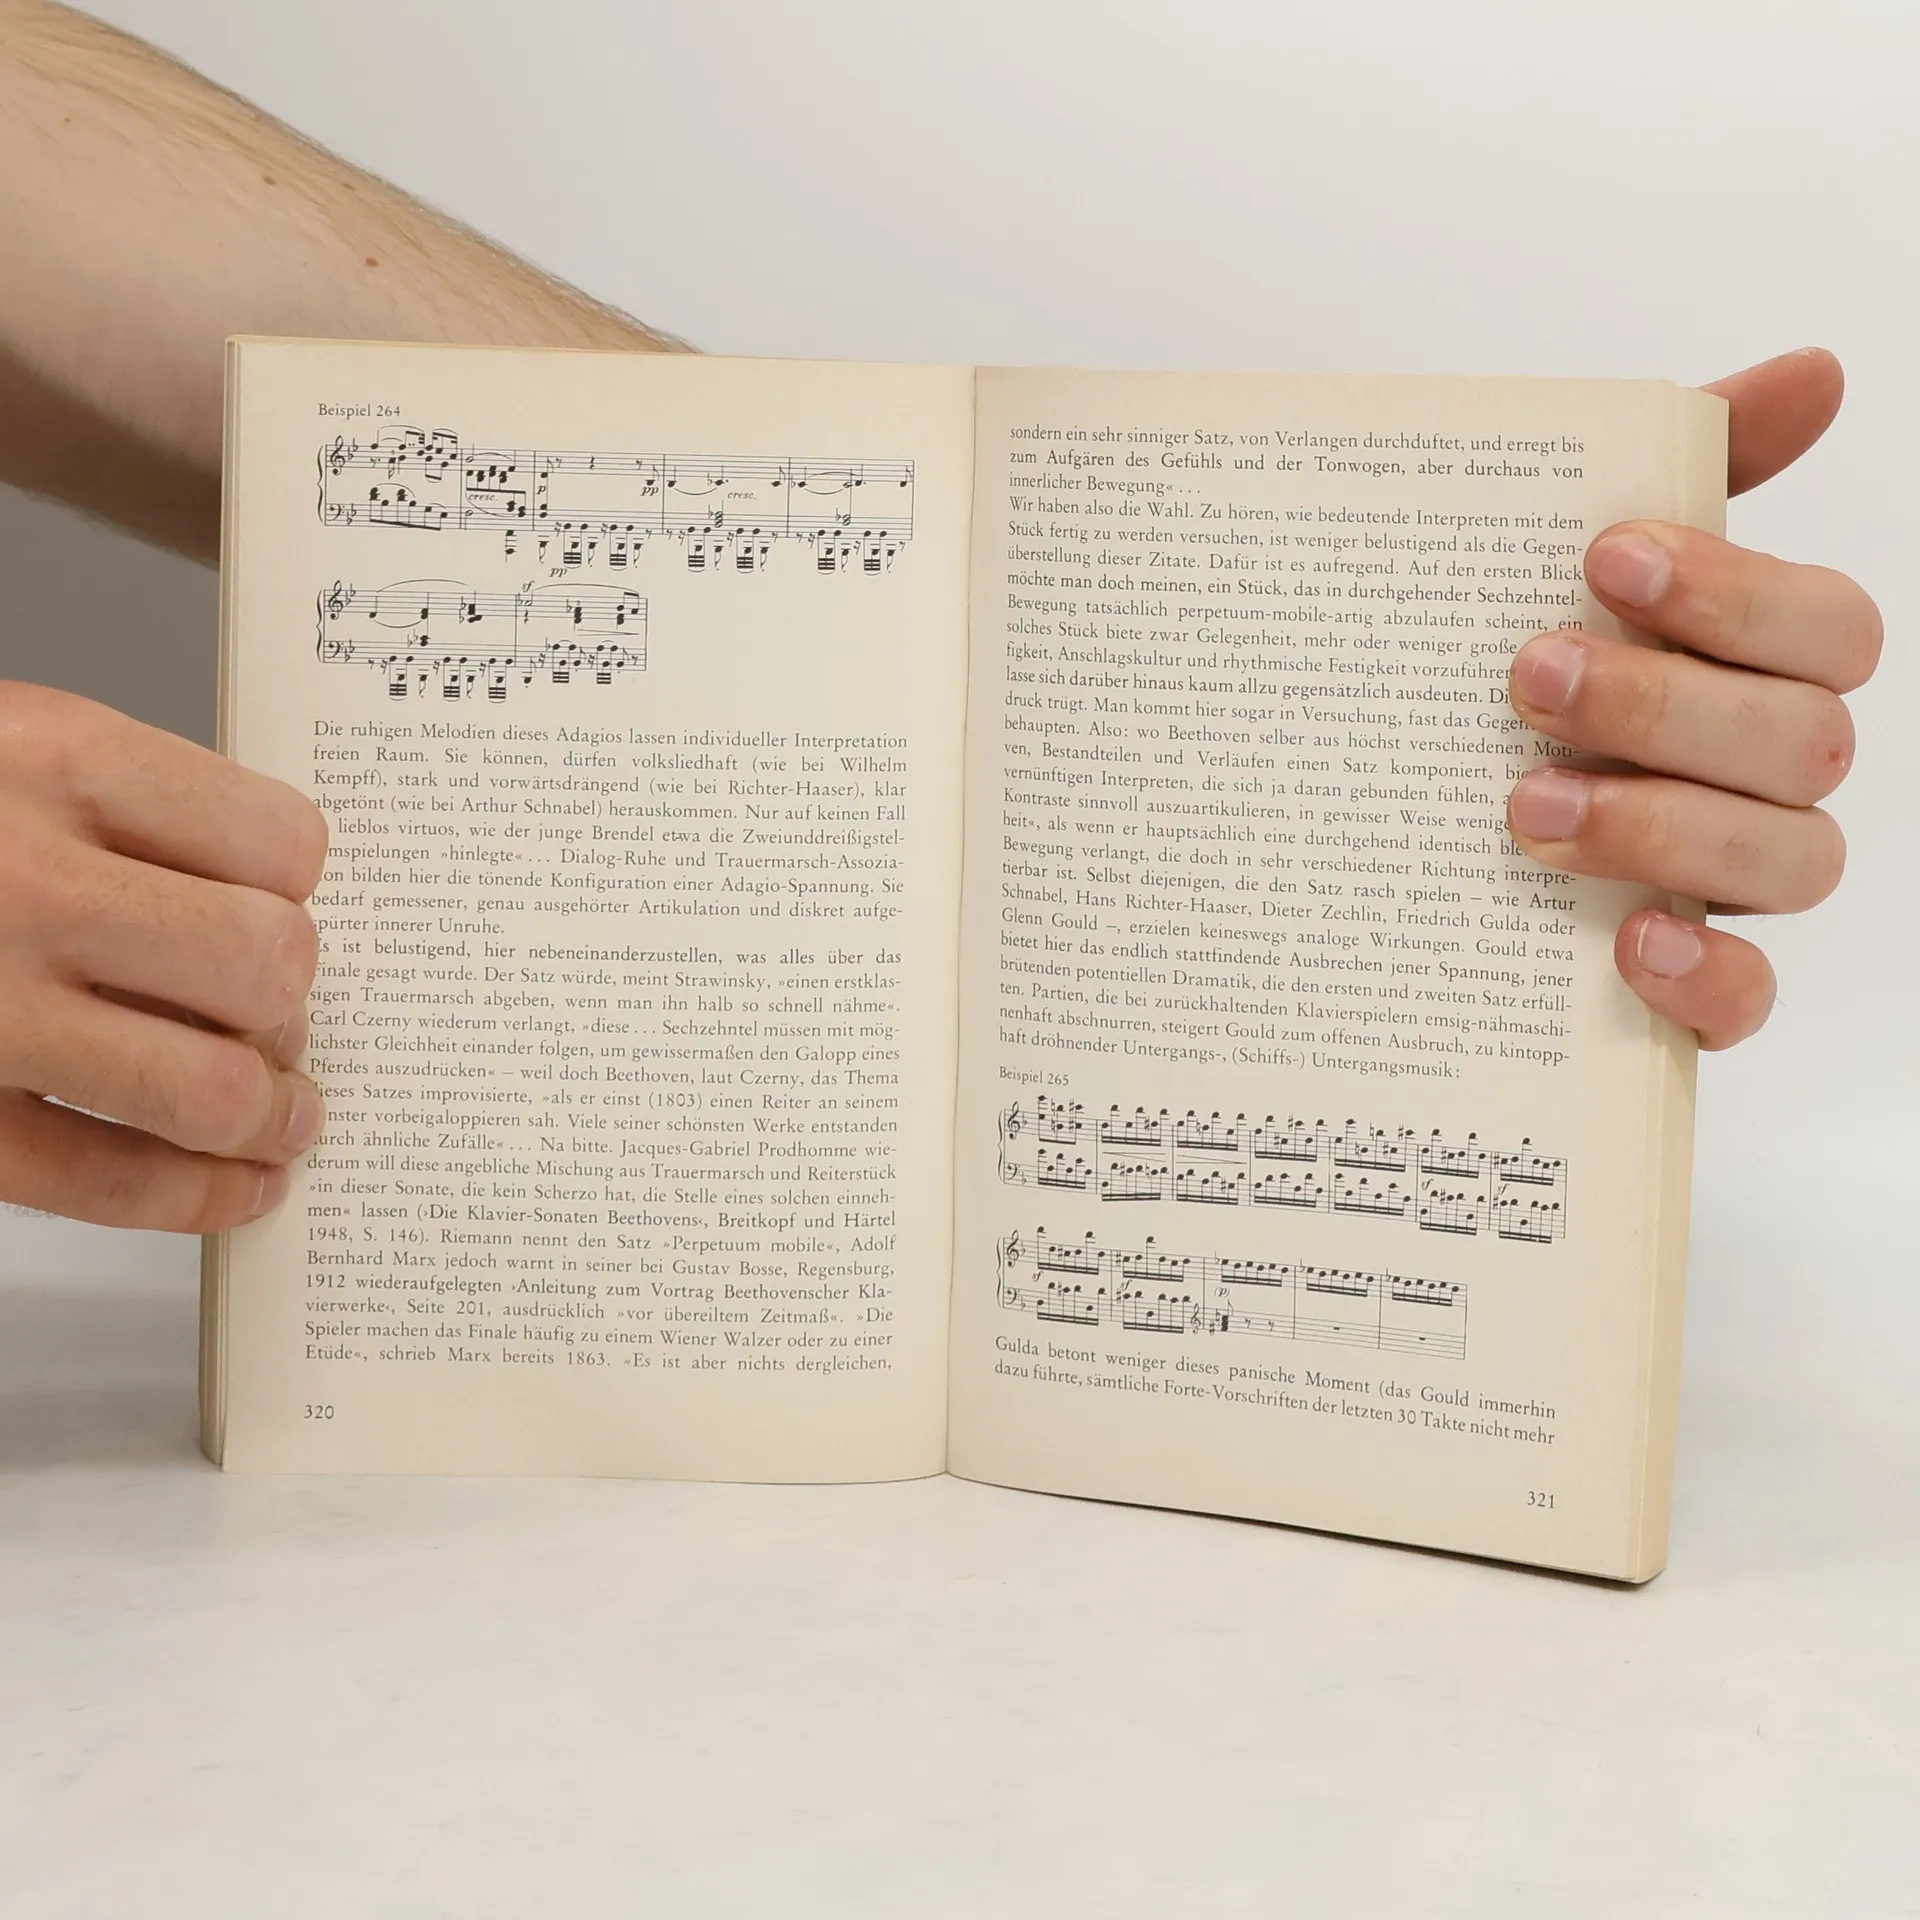 Beispiel 264
cresc.
p
pp
cresc.
pp
sf
Die ruhigen Melodien dieses Adagios lassen individueller Interpretation
freien Raum. Sie können, dürfen volksliedhaft (wie bei Wilhelm
Kempff), stark und vorwärtsdrängend (wie bei Richter-Haaser), klar
abgetönt (wie bei Arthur Schnabel) herauskommen. Nur auf keinen Fall
lieblos virtuos, wie der junge Brendel etwa die Zweiunddreißigstel-
mspielungen »hinlegte«... Dialog-Ruhe und Trauermarsch-Assozia-
on bilden hier die tönende Konfiguration einer Adagio-Spannung. Sie
bedarf gemessener, genau ausgehörter Artikulation und diskret aufge-
spürter innerer Unruhe.
Es ist belustigend, hier nebeneinanderzustellen, was alles über das
Finale gesagt wurde. Der Satz würde, meint Strawinsky, »einen erstklas-
sigen Trauermarsch abgeben, wenn man ihn halb so schnell nähme«.
Carl Czerny wiederum verlangt, »diese... Sechzehntel müssen mit mög-
lichster Gleichheit einander folgen, um gewissermaßen den Galopp eines
Pferdes auszudrücken« – weil doch Beethoven, laut Czerny, das Thema
dieses Satzes improvisierte, »als er einst (1803) einen Reiter an seinem
nster vorbeigaloppieren sah. Viele seiner schönsten Werke entstanden
durch ähnliche Zufälle«... Na bitte. Jacques-Gabriel Prodhomme wie-
derum will diese angebliche Mischung aus Trauermarsch und Reiterstück
»in dieser Sonate, die kein Scherzo hat, die Stelle eines solchen einneh-
men« lassen (›Die Klavier-Sonaten Beethovens‹, Breitkopf und Härtel
1948, S. 146). Riemann nennt den Satz »Perpetuum mobile«, Adolf
Bernhard Marx jedoch warnt in seiner bei Gustav Bosse, Regensburg,
1912 wiederaufgelegten ›Anleitung zum Vortrag Beethovenscher Kla-
vierwerke‹, Seite 201, ausdrücklich »vor übereiltem Zeitmaß«. »Die
Spieler machen das Finale häufig zu einem Wiener Walzer oder zu einer
Etüde«, schrieb Marx bereits 1863. »Es ist aber nichts dergleichen,
320
sondern ein sehr sinniger Satz, von Verlangen durchduftet, und erregt bis
zum Aufgären des Gefühls und der Tonwogen, aber durchaus von
innerlicher Bewegung«...
Wir haben also die Wahl. Zu hören, wie bedeutende Interpreten mit dem
Stück fertig zu werden versuchen, ist weniger belustigend als die Gegen-
überstellung dieser Zitate. Dafür ist es aufregend. Auf den ersten Blick
möchte man doch meinen, ein Stück, das in durchgehender Sechzehntel-
Bewegung tatsächlich perpetuum-mobile-artig abzulaufen scheint, ein
solches Stück biete zwar Gelegenheit, mehr oder weniger große
figkeit, Anschlagskultur und rhythmische Festigkeit vorzuführen
lasse sich darüber hinaus kaum allzu gegensätzlich ausdeuten. Di
druck trügt. Man kommt hier sogar in Versuchung, fast das Gegen
behaupten. Also: wo Beethoven selber aus höchst verschiedenen Moti-
ven, Bestandteilen und Verläufen einen Satz komponiert, bie
vernünftigen Interpreten, die sich ja daran gebunden fühlen, a
Kontraste sinnvoll auszuartikulieren, in gewisser Weise wenige
heit«, als wenn er hauptsächlich eine durchgehend identisch ble
Bewegung verlangt, die doch in sehr verschiedener Richtung interpre-
tierbar ist. Selbst diejenigen, die den Satz rasch spielen – wie Artur
Schnabel, Hans Richter-Haaser, Dieter Zechlin, Friedrich Gulda oder
Glenn Gould –, erzielen keineswegs analoge Wirkungen. Gould etwa
bietet hier das endlich stattfindende Ausbrechen jener Spannung, jener
brütenden potentiellen Dramatik, die den ersten und zweiten Satz erfüll-
ten. Partien, die bei zurückhaltenden Klavierspielern emsig-nähmaschi-
nenhaft abschnurren, steigert Gould zum offenen Ausbruch, zu kintopp-
haft dröhnender Untergangs-, (Schiffs-) Untergangsmusik:
Beispiel 265
sf
sf
sf
sf
(p)
Gulda betont weniger dieses panische Moment (das Gould immerhin
dazu führte, sämtliche Forte-Vorschriften der letzten 30 Takte nicht mehr
321